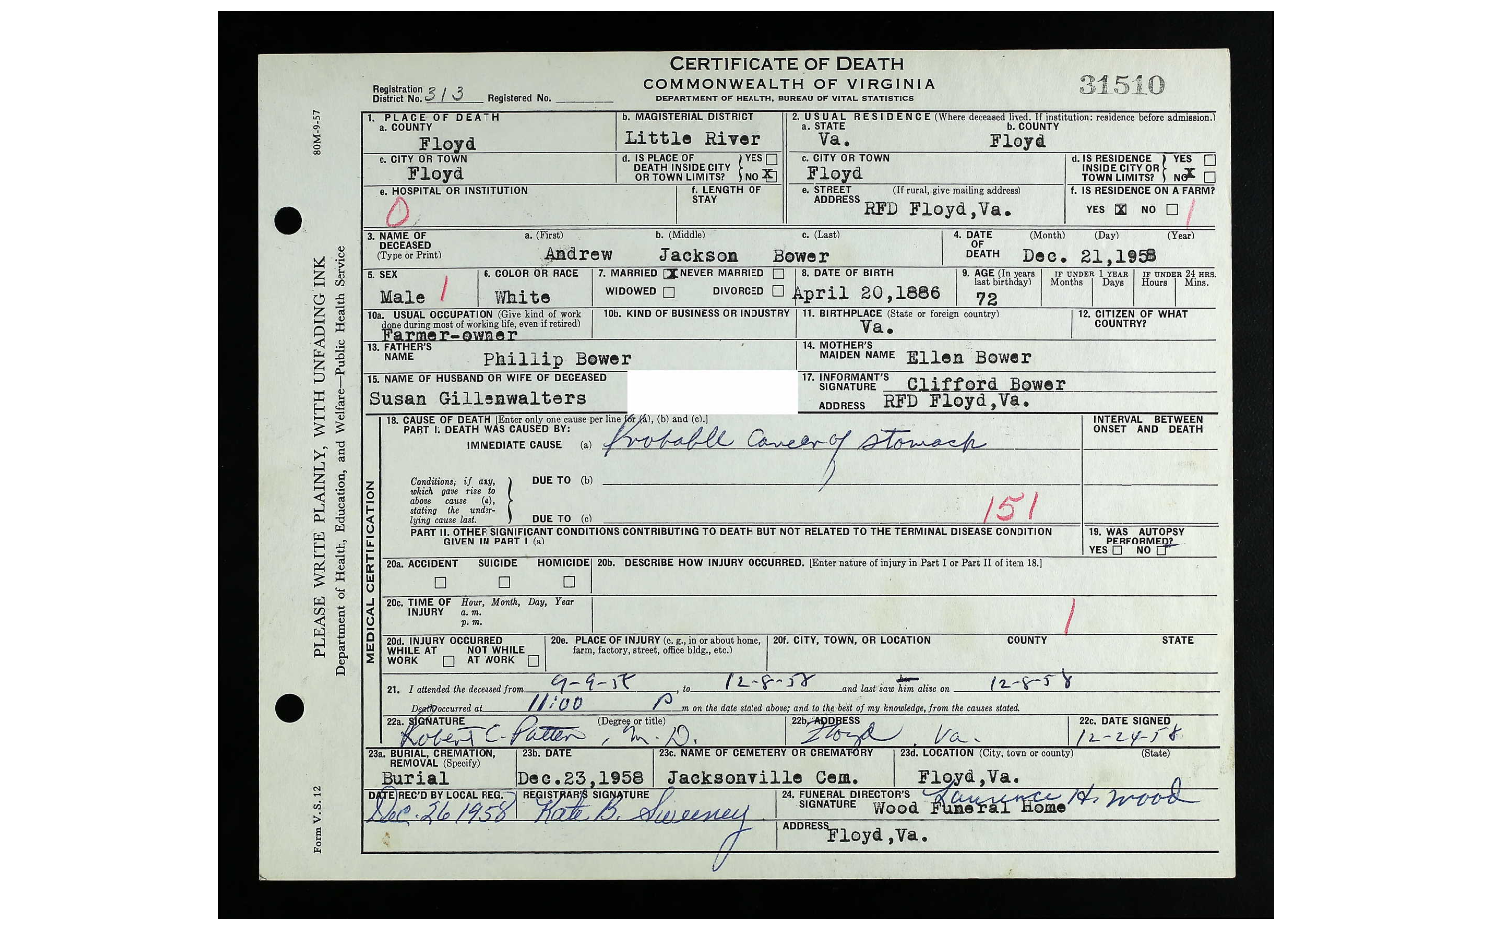 CERTIFICATE OF DEATH
COMMONWEALTH OF VIRGINIA
DEPARTMENT OF HEALTH, BUREAU OF VITAL STATISTICS
31510
Registration District No. 313 Registered No.
80M-9-57
PLEASE WRITE PLAINLY, WITH UNFADING INK
Department of Health, Education, and Welfare—Public Health Service
Form V. S. 12
1. PLACE OF DEATH
a. COUNTY
Floyd
b. MAGISTERIAL DISTRICT
Little River
2. USUAL RESIDENCE (Where deceased lived. If institution: residence before admission.)
a. STATE
Va.
b. COUNTY
Floyd
c. CITY OR TOWN
Floyd
d. IS PLACE OF DEATH INSIDE CITY OR TOWN LIMITS? YES NO X
c. CITY OR TOWN
Floyd
d. IS RESIDENCE INSIDE CITY OR TOWN LIMITS? YES NO X
e. HOSPITAL OR INSTITUTION
0
f. LENGTH OF STAY
e. STREET ADDRESS (If rural, give mailing address)
RFD Floyd,Va.
f. IS RESIDENCE ON A FARM?
YES X NO 1
3. NAME OF DECEASED (Type or Print)
a. (First) b. (Middle) c. (Last)
Andrew Jackson Bower
4. DATE OF DEATH (Month) (Day) (Year)
Dec. 21,1958
5. SEX
Male 1
6. COLOR OR RACE
White
7. MARRIED X NEVER MARRIED
WIDOWED DIVORCED
8. DATE OF BIRTH
April 20,1886
9. AGE (In years last birthday)
72
IF UNDER 1 YEAR Months Days
IF UNDER 24 HRS. Hours Mins.
10a. USUAL OCCUPATION (Give kind of work done during most of working life, even if retired)
Farmer-owner
10b. KIND OF BUSINESS OR INDUSTRY
11. BIRTHPLACE (State or foreign country)
Va.
12. CITIZEN OF WHAT COUNTRY?
13. FATHER'S NAME Phillip Bower
14. MOTHER'S MAIDEN NAME Ellen Bower
15. NAME OF HUSBAND OR WIFE OF DECEASED
Susan Gillenwalters
17. INFORMANT'S SIGNATURE Clifford Bower
ADDRESS RFD Floyd,Va.
MEDICAL CERTIFICATION
18. CAUSE OF DEATH [Enter only one cause per line for (a), (b) and (c).]
PART I. DEATH WAS CAUSED BY:
IMMEDIATE CAUSE (a) Probable Cancer of stomach
INTERVAL BETWEEN ONSET AND DEATH
Conditions, if any, which gave rise to above cause (a), stating the underlying cause last.
DUE TO (b)
DUE TO (c)
151
PART II. OTHER SIGNIFICANT CONDITIONS CONTRIBUTING TO DEATH BUT NOT RELATED TO THE TERMINAL DISEASE CONDITION GIVEN IN PART I (a)
19. WAS AUTOPSY PERFORMED?
YES NO
20a. ACCIDENT SUICIDE HOMICIDE
20b. DESCRIBE HOW INJURY OCCURRED. [Enter nature of injury in Part I or Part II of item 18.]
20c. TIME OF INJURY Hour, Month, Day, Year
a. m.
p. m.
1
20d. INJURY OCCURRED
WHILE AT WORK NOT WHILE AT WORK
20e. PLACE OF INJURY (e. g., in or about home, farm, factory, street, office bldg., etc.)
20f. CITY, TOWN, OR LOCATION COUNTY STATE
21. I attended the deceased from 9-9-58, to 12-8-58 and last saw him alive on 12-8-58
Death occurred at 11:00 P m on the date stated above; and to the best of my knowledge, from the causes stated.
22a. SIGNATURE (Degree or title)
Robert C. Patten, M. D.
22b. ADDRESS
Floyd, Va.
22c. DATE SIGNED
12-24-58
23a. BURIAL, CREMATION, REMOVAL (Specify)
Burial
23b. DATE
Dec.23,1958
23c. NAME OF CEMETERY OR CREMATORY
Jacksonville Cem.
23d. LOCATION (City, town or county) (State)
Floyd,Va.
DATE REC'D BY LOCAL REG.
Dec. 26 1958
REGISTRAR'S SIGNATURE
Kate B. Sweeney
24. FUNERAL DIRECTOR'S SIGNATURE Laurence H. Wood
Wood Funeral Home
ADDRESS Floyd,Va.